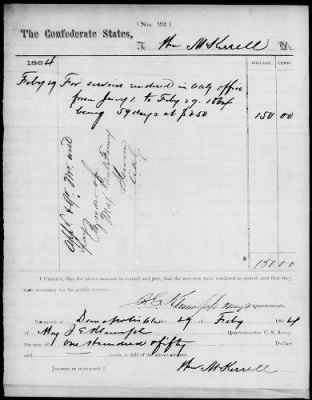 (No. 22.)
The Confederate States,
To Wm McKerrell Dr.
DOLLARS. CENTS.
1864
Feby 29 For services rendered in office
from Jany 1. to Feby 29. 1864
being 59 days at $2.50 150 00
$ 150.00
I CERTIFY, that the above account is correct and just; that the services were rendered as stated, and that they
were necessary for the public service.
Quartermaster.
RECEIVED at Demopolis 29 of Feby 1864 of
Maj Quartermaster C. S. Army,
the sum of one hundred & fifty Dollars
and cents, in full of the above account.
[SIGNED IN DUPLICATE.] Wm McKerrell